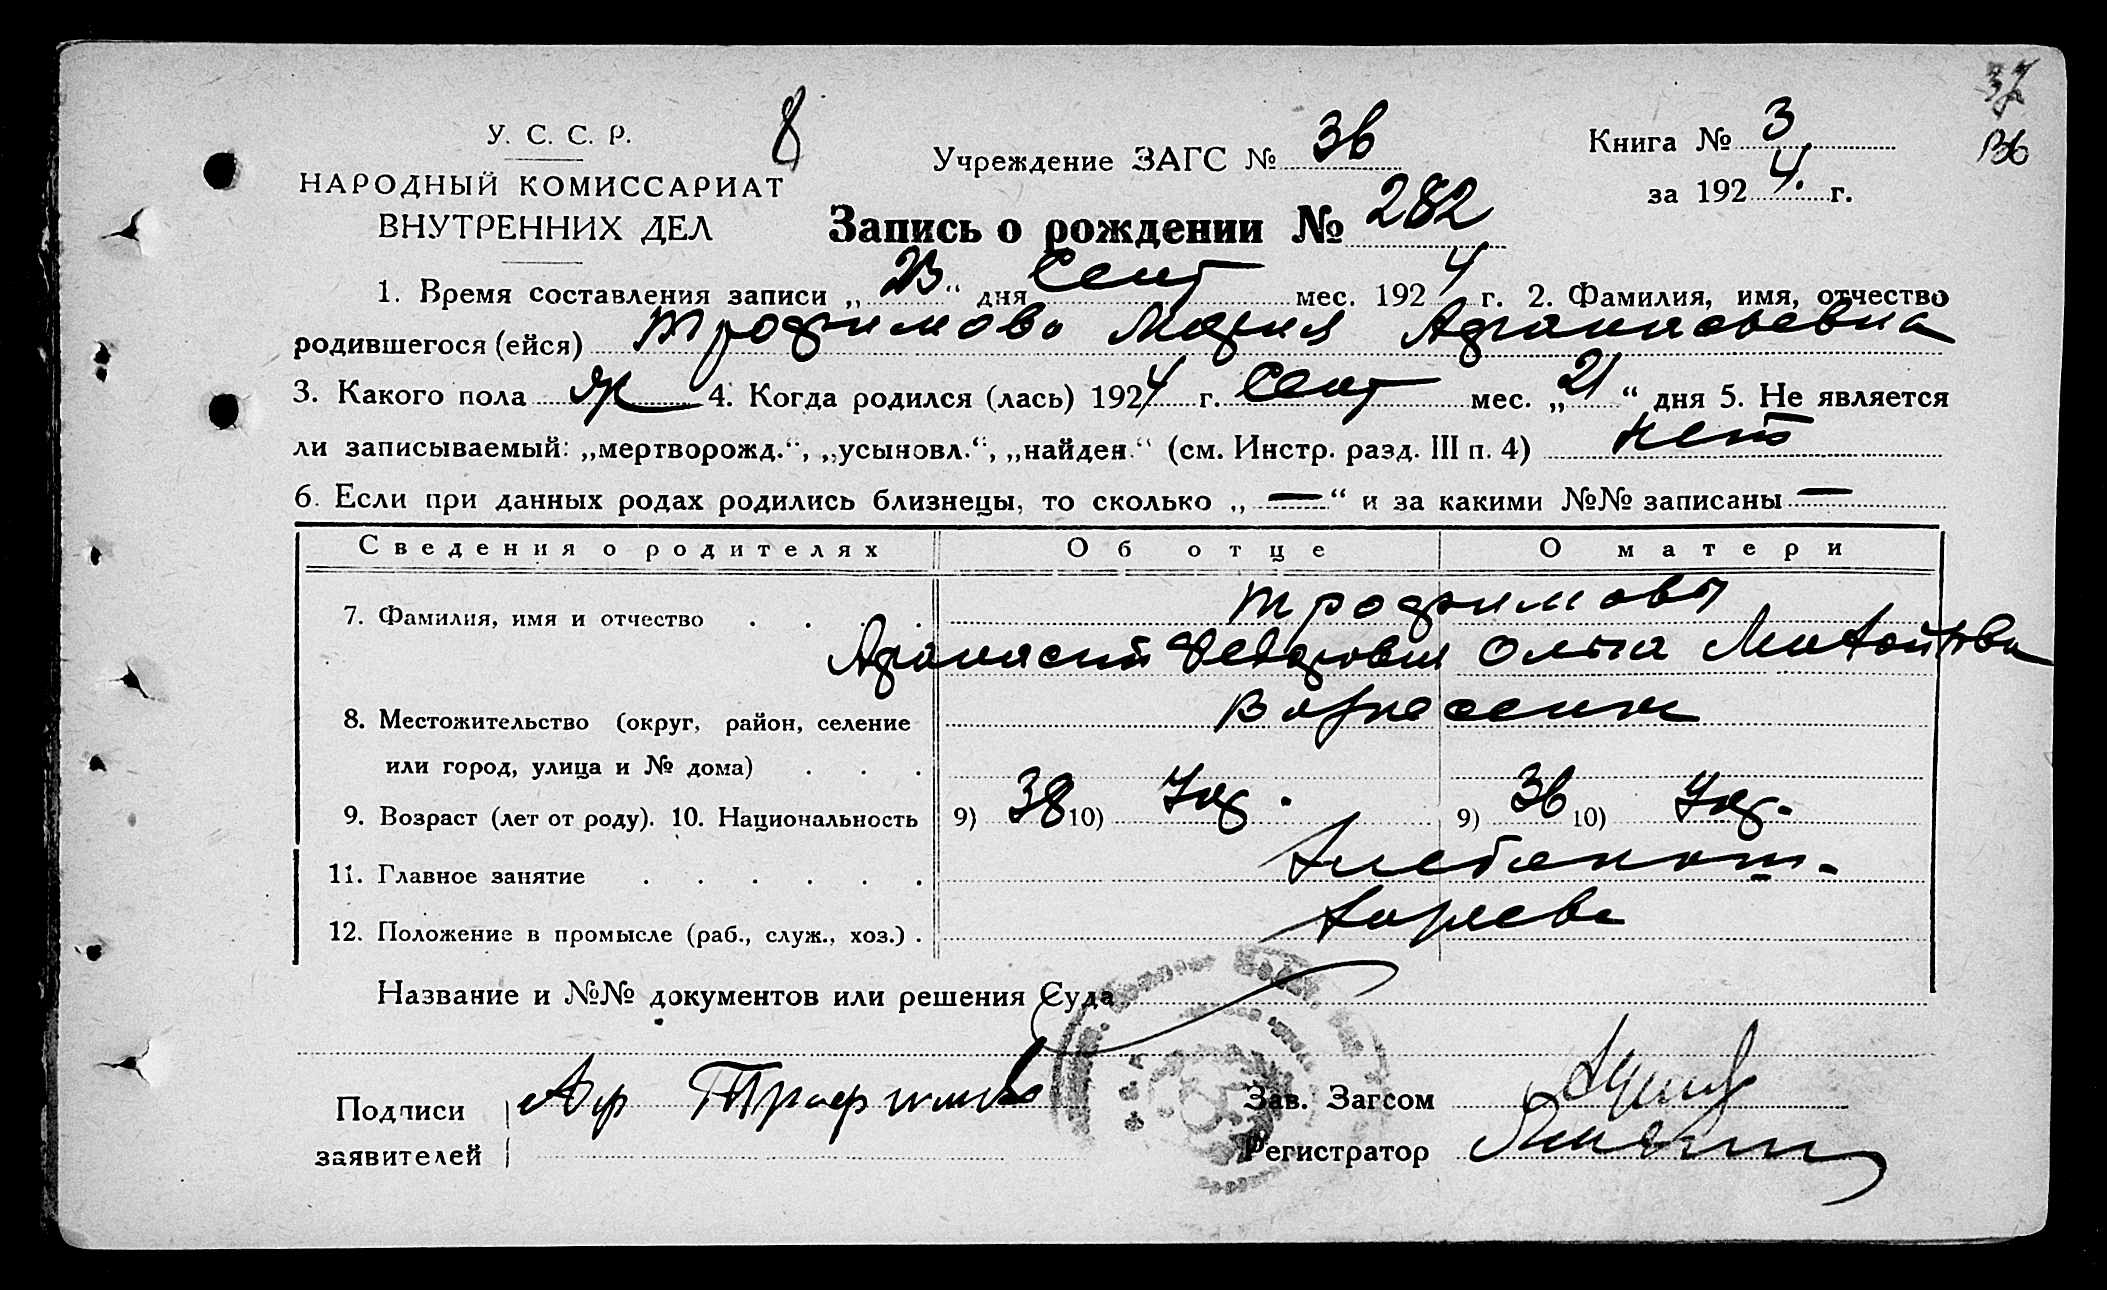 37
136
У. С. С. Р.
8
Учреждение ЗАГС № 36
Книга № 3
за 1924. г.
НАРОДНЫЙ КОМИССАРИАТ
ВНУТРЕННИХ ДЕЛ
Запись о рождении № 282
1. Время составления записи „23“ дня Сент мес. 1924 г. 2. Фамилия, имя, отчество
родившегося (ейся) Трофимова Мария Афанасьевна
3. Какого пола ж 4. Когда родился (лась) 1924 г. Сент мес. „21“ дня 5. Не является
ли записываемый: „мертворожд.“, „усыновл.“, „найден.“ (см. Инстр. разд. III п. 4) нет
6. Если при данных родах родились близнецы, то сколько „—“ и за какими №№ записаны —
Сведения о родителях Об отце О матери
7. Фамилия, имя и отчество . . . . Трофимовы
Афанасий Федорович Ольга
8. Местожительство (округ, район, селение
или город, улица и № дома) . . .
9. Возраст (лет от роду). 10. Национальность 9) 38 10) 9) 36 10)
11. Главное занятие . . . . . . Хлебопаш.
12. Положение в промысле (раб., служ., хоз.) . хозяева
Название и №№ документов или решения Суда
Подписи Аф Трофимов
заявителей
Зав. Загсом
Регистратор